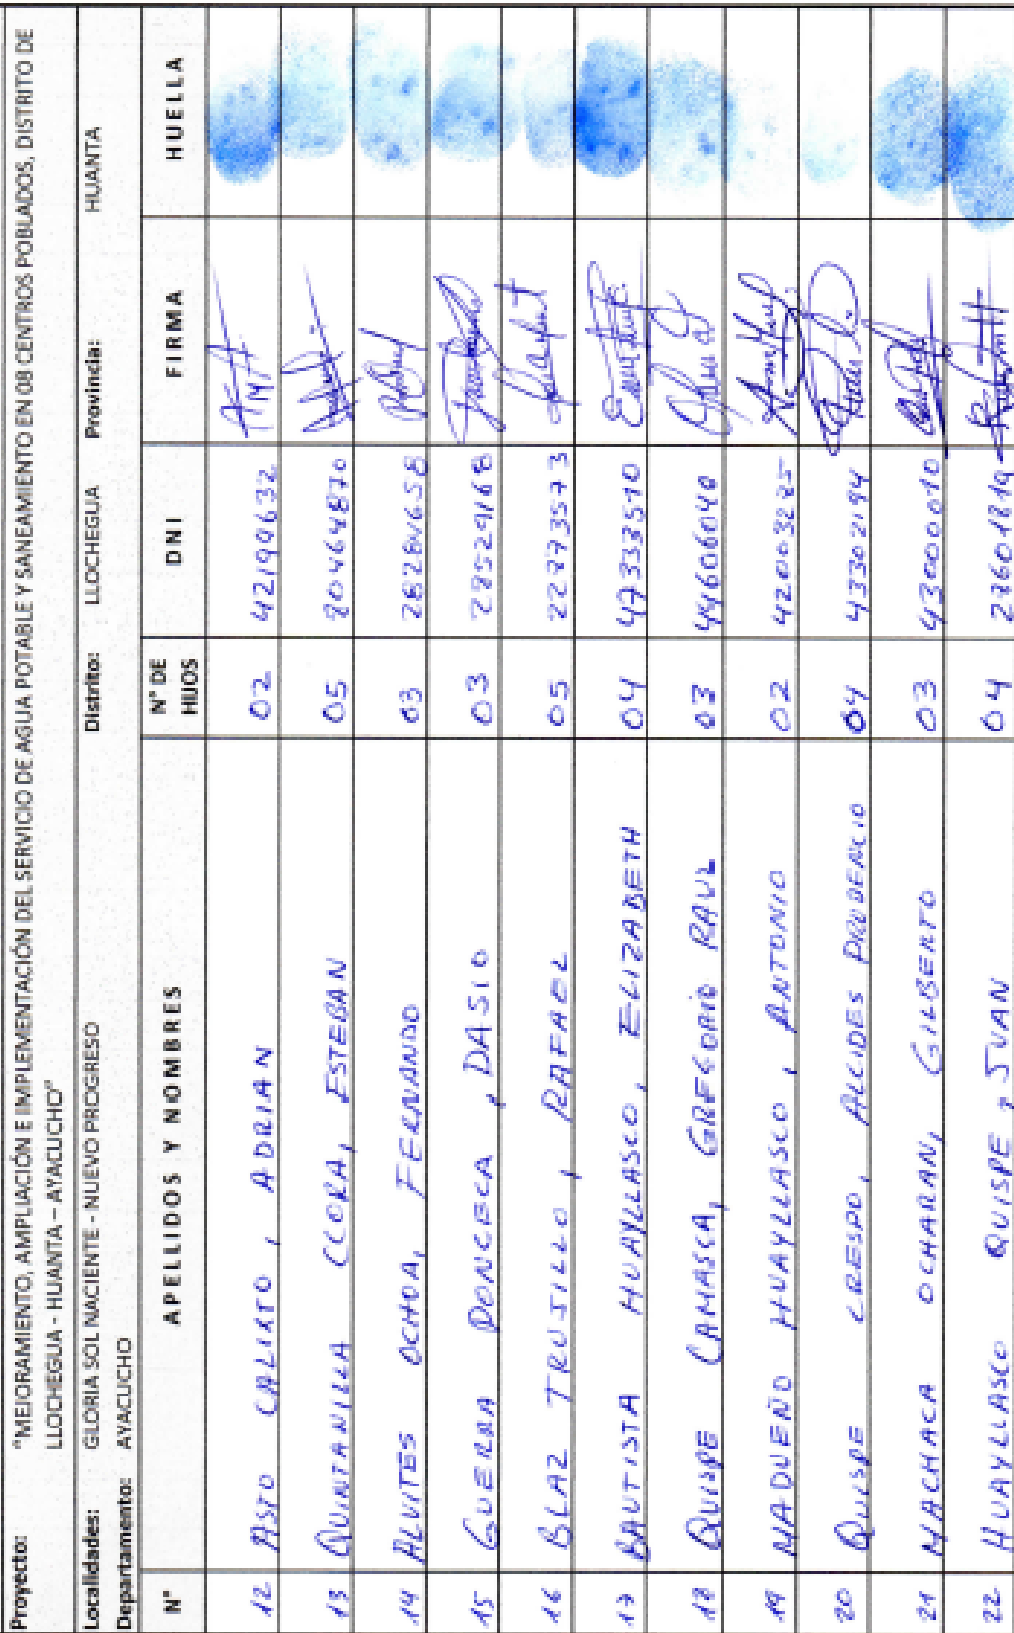 Proyecto: "MEJORAMIENTO, AMPLIACIÓN E IMPLEMENTACIÓN DEL SERVICIO DE AGUA POTABLE Y SANEAMIENTO EN 08 CENTROS POBLADOS, DISTRITO DE
LLOCHEGUA - HUANTA – AYACUCHO"
Localidades: GLORIA SOL NACIENTE - NUEVO PROGRESO Distrito: LLOCHEGUA Provincia: HUANTA
Departamento: AYACUCHO
N° APELLIDOS Y NOMBRES N° DE HIJOS DNI FIRMA HUELLA
12 ASTO CALIXTO, ADRIAN 02 42199632
13 QUINTANILLA CCORA, ESTEBAN 05 80464870
14 ALVITES OCHOA, FERNANDO 03 28284658
15 GUERRA PONCECA, DASIO 03 28529168
16 BLAZ TRUJILLO, RAFAEL 05 22273573
17 BAUTISTA HUAYLLASCO, ELIZABETH 04 47333510
18 QUISPE CAMASCA, GREGORIO RAUL 03 44606040
19 MADUEÑO HUAYLLASCO, ANTONIO 02 42003285
20 QUISPE CRESPO, ALCIDES PRUDENCIO 04 43302194
21 MACHACA OCHARAN, GILBERTO 03 43000010
22 HUAYLLASCO QUISPE, JUAN 04 28601819